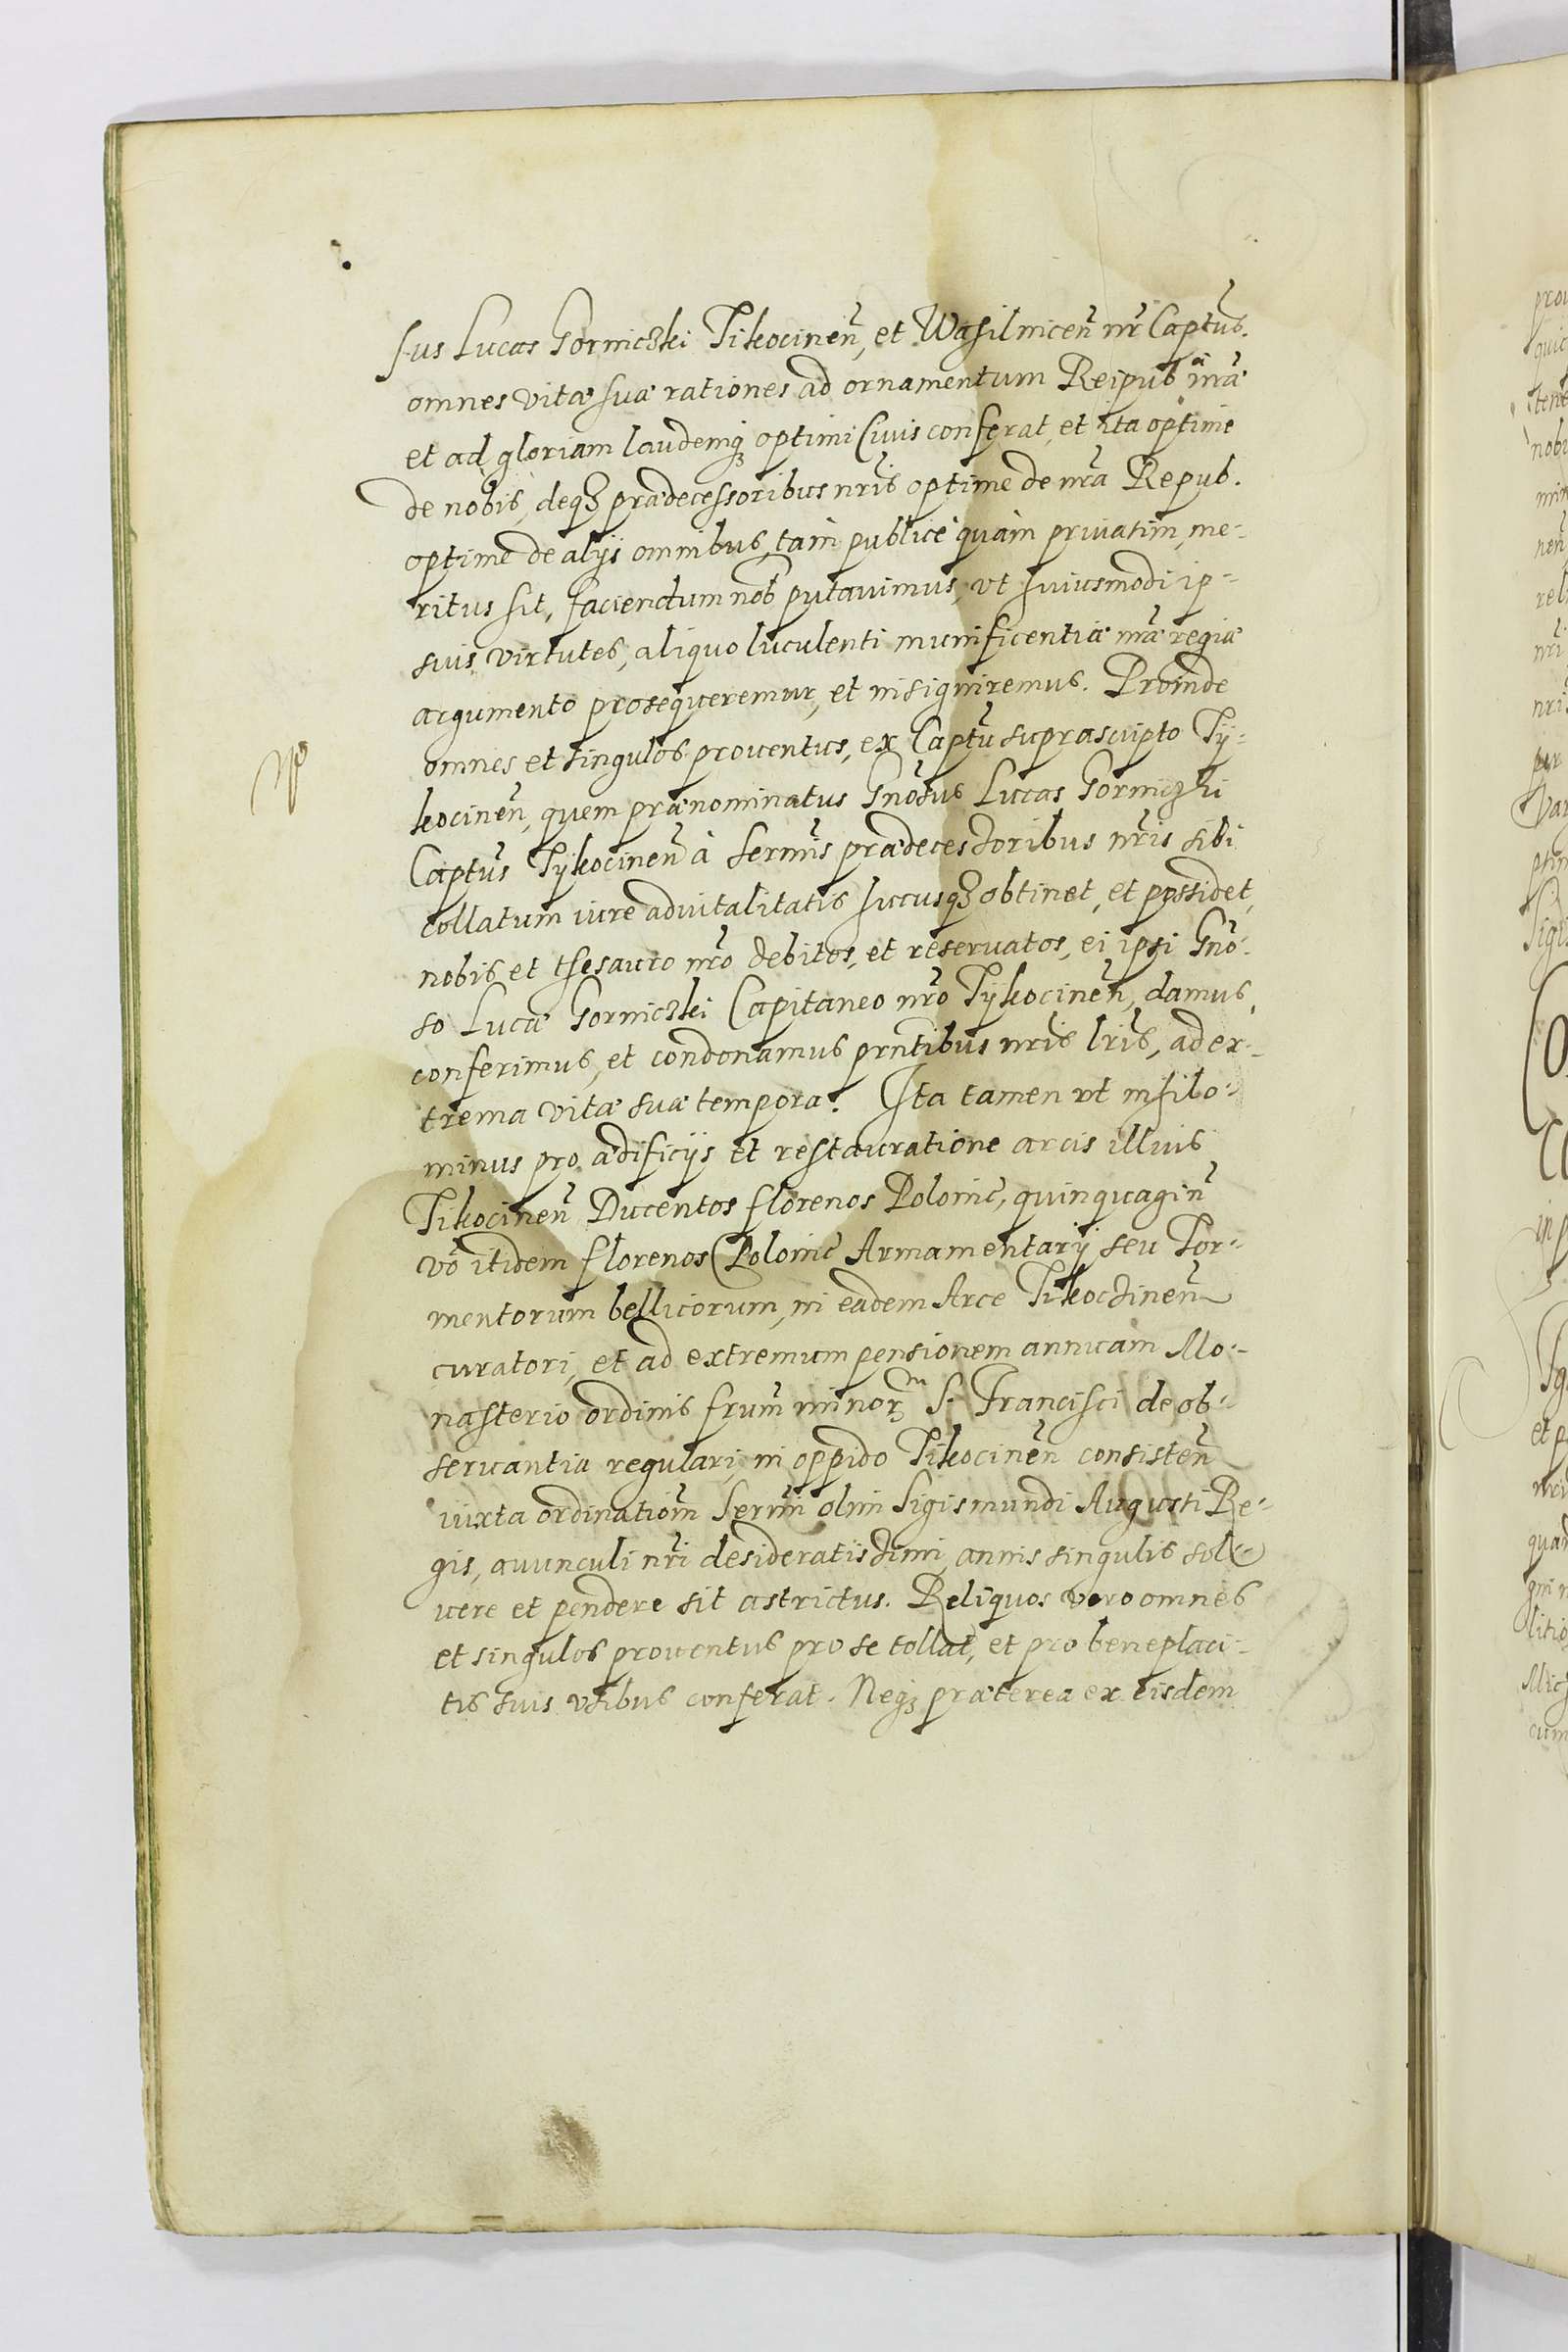 sus Lucas Gorniczki Tikocineñ, et Wasilniceñ nr̃ Capt̃us.
omnes vitæ suæ rationes ad ornamentum Reipub nr̃æ
et ad gloriam laudemqȝ optimi Civis conferat, et ita optime
de nobis, deqȝ prædecessoribus nr̃is optime de nr̃a Repub.
optime de alijs omnibus, tam publicè quàm priuatim, me-
ritus sit, faciendum nob̃ putauimus, vt huiusmodi ip-
sius virtutes, aliquo luculenti munificentiæ nr̃æ regiæ
argumento prosequeremur, et insigniremus. Proinde
omnes et singulos prouentus, ex Capt̃u suprascripto Ty-
kocineñ, quem prænominatus Gñosus Lucas Gorniczki
Capt̃us Tykocineñ à serm̃is prædecessoribus nr̃is sibi
collatum iure aduitalitatis hucusqȝ obtinet, et possidet,
nobis et thesauro nr̃o debitos, et reseruatos, ei ipsi Gño-
so Lucæ Gorniczki Capitaneo nr̃o Tykocineñ, damus,
conferimus, et condonamus prñtibus nr̃is lr̃is, ad ex-
trema vitæ suæ tempora. Ita tamen vt nihilo-
minus pro ædificijs et restauratione arcis illius
Tikocineñ Ducentos florenos Polonic̃, quinquagin̄
vo᷃ itidem florenos Polonic̃ Armamentarij seu Tor-
mentorum bellicorum, in eadem Arce Tikoczineñ
curatori, et ad extremum pensionem annuam Mo-
nasterio ordinis frum̃ minorȝ S. Francisci de ob-
seruantia regulari, in oppido Tikocineñ consisteñ
iuxta ordinatiom̃ Serm̃i olim Sigismundi Augusti Re-
gis, auunculi nr̃i desideratissimi, annis singulis sol-
uere et pendere sit astrictus. Reliquos vero omnes
et singulos prouentus pro se tollat, et pro beneplaci-
tis suis vsibus conferat. Neqȝ præterea ex eisdem